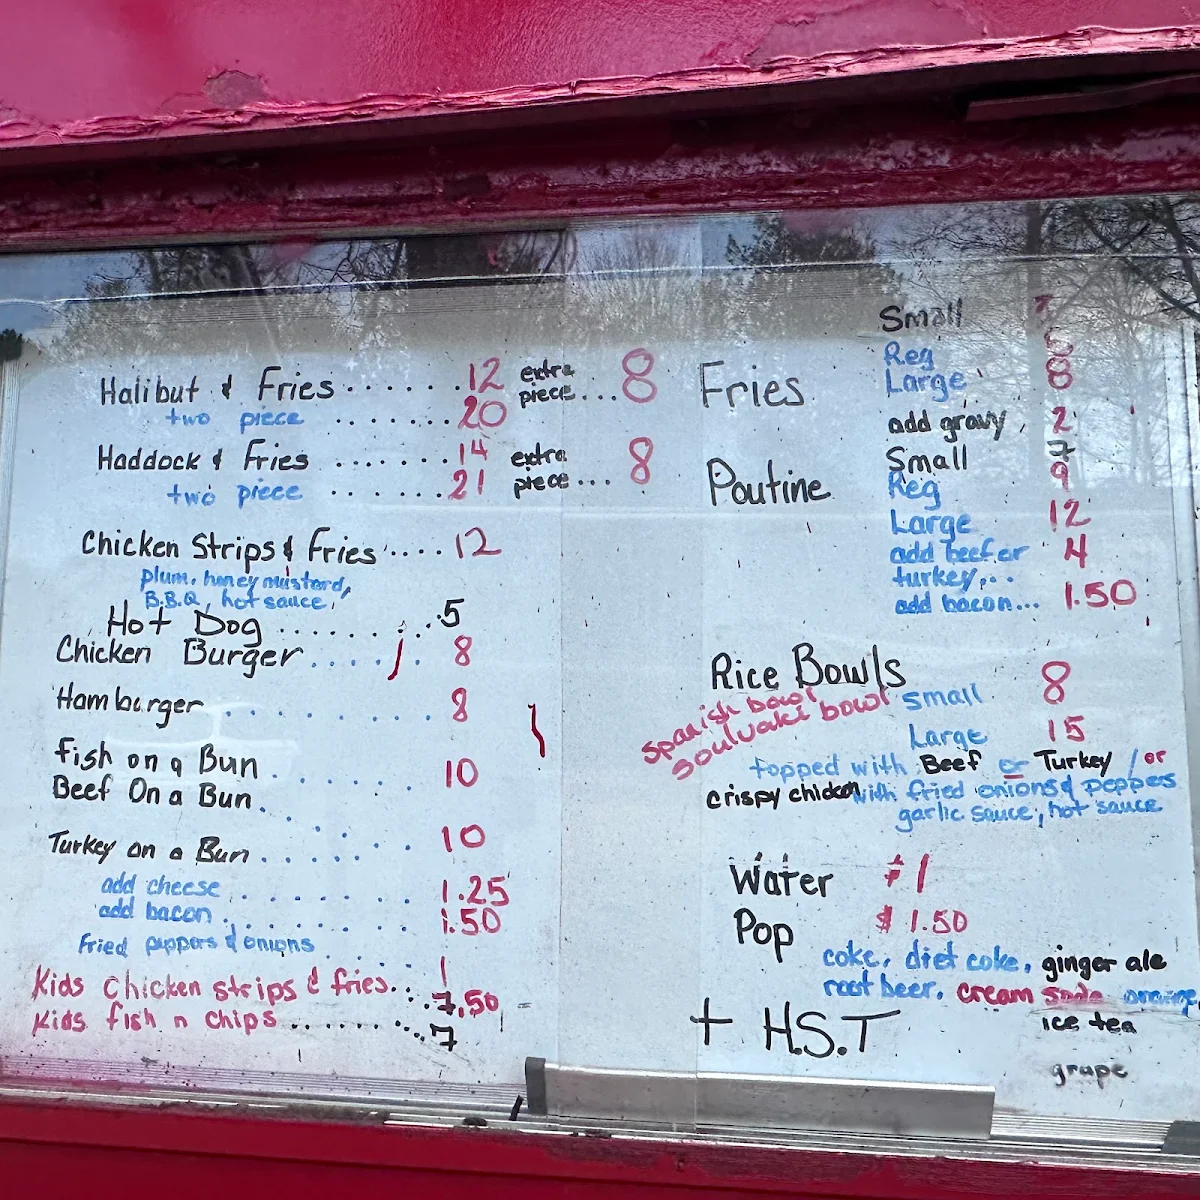 Halibut & Fries ....... 12 extra piece... 8
two piece ....... 20
Haddock & Fries ....... 14 extra piece... 8
two piece ....... 21
Chicken Strips & Fries .... 12
plum, honey mustard,
B.B.Q, hot sauce,
Hot Dog ......... 5
Chicken Burger ..... 8
Hamburger ......... 8
Fish on a Bun ...... 10
Beef On a Bun .
Turkey on a Bun ....... 10
add cheese ........ 1.25
add bacon ........ 1.50
Fried peppers & onions .... 1
Kids Chicken strips & fries... 7.50
Kids fish n chips ........ 7
Fries
Small
Reg
Large 8
add gravy 2
Poutine
Small 7
Reg 9
Large 12
add beef or 4
turkey...
add bacon... 1.50
Rice Bowls
Spanish bowl small 8
souvlaki bowl Large 15
topped with Beef or Turkey / or
crispy chicken with fried onions & peppers
garlic sauce, hot sauce
Water $1
Pop $1.50
coke, diet coke, ginger ale
root beer, cream soda orange,
ice tea
grape
+ H.S.T